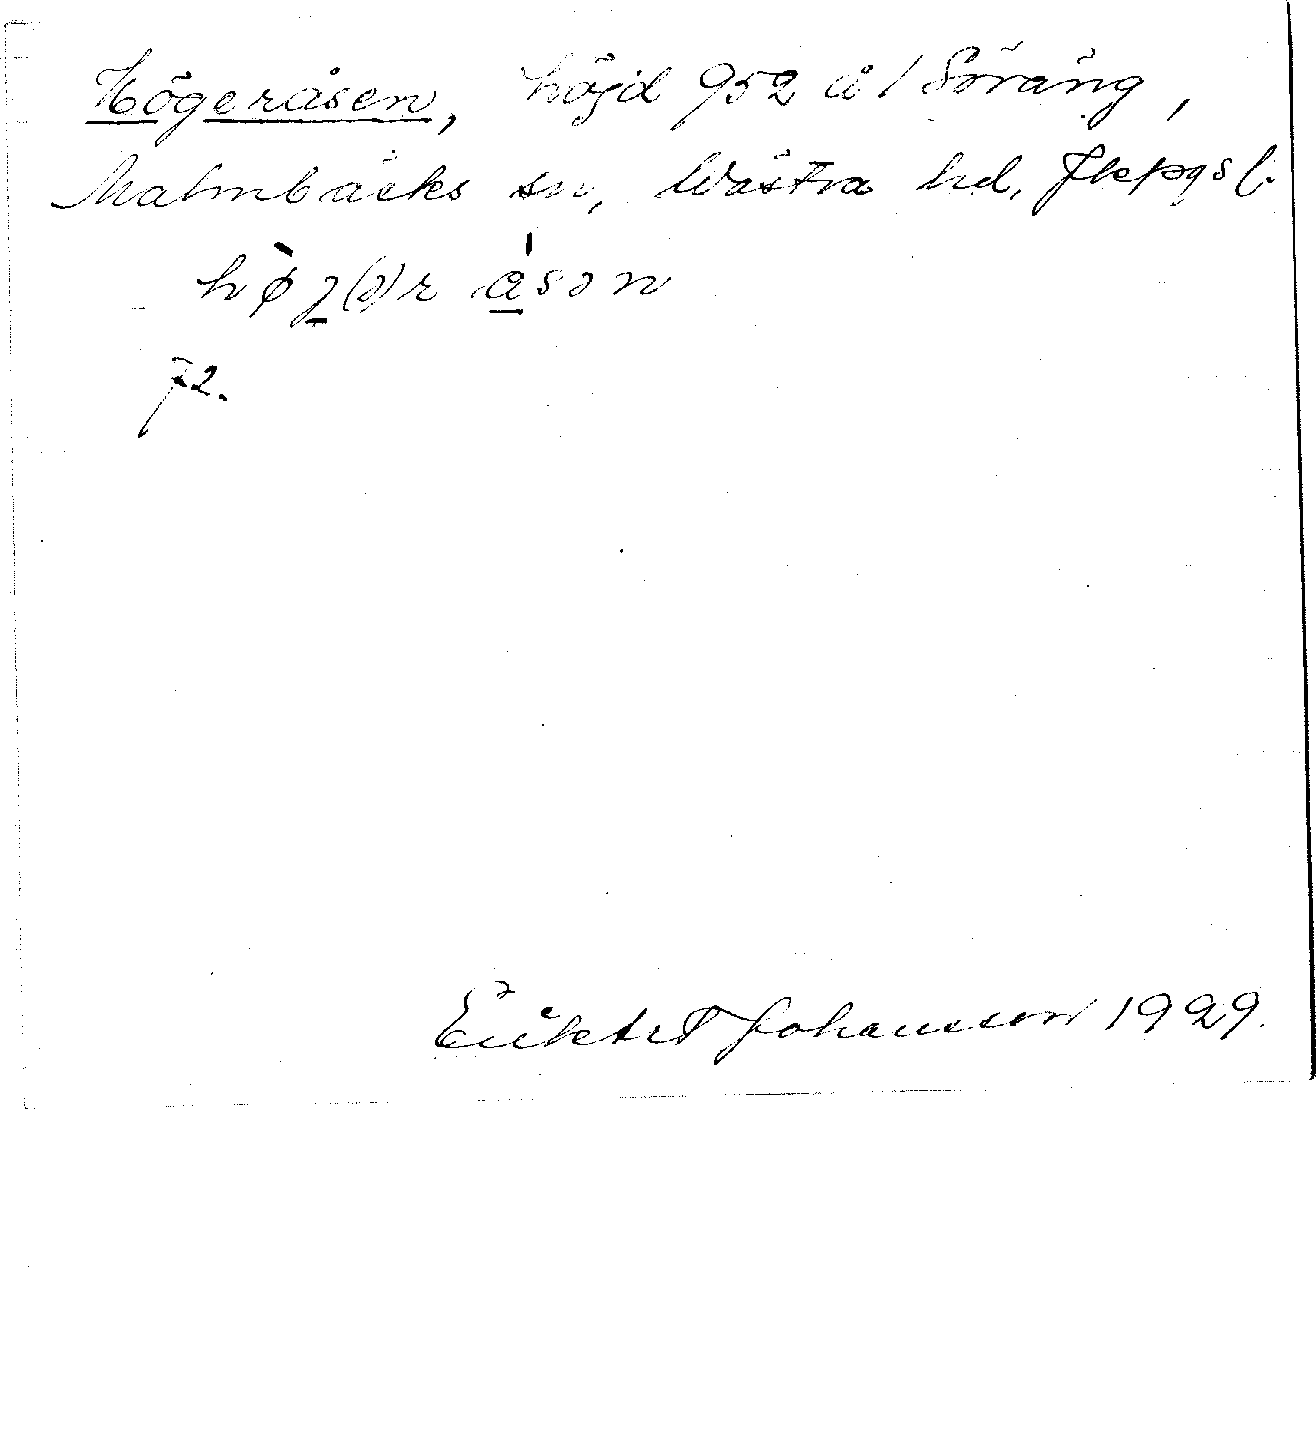 Högeråsen, höjd 952 å 1 Söräng,
Malmbäcks sn, Västra hd, Jkpgs l.
høg(ə)r åsən
72.
Johansson 1929.